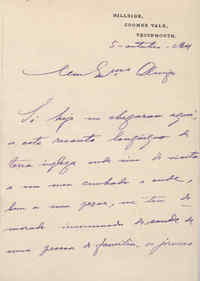 HILLSIDE,
COOMBE VALE,
TEIGNMOUTH.
5 - outubro -
Meu Exmo Amigo
Só hoje me chegaram aqui,
a este recanto longinquo de
terra ingleza onde vim de visita
a um meu cunhado e onde,
bem a meu pezar, me tem de-
morado incommodo de saude de
uma pessoa de familia, os